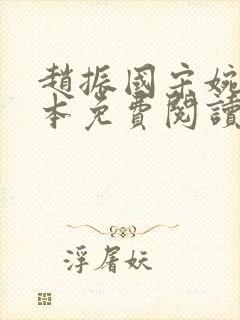 趙振國宋婉
本免費閱讀
浮屠妖